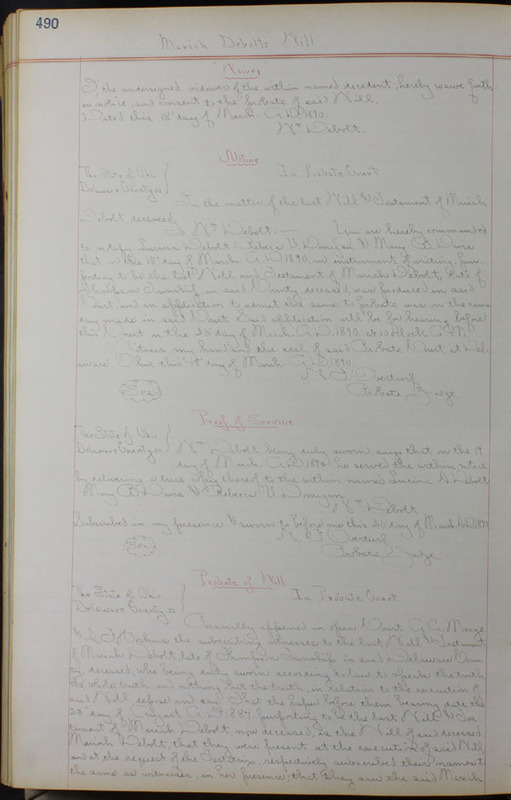 490
Mariah Debolt's Will
Waiver
I, the undersigned widower of the within named decedent, hereby waive furth-
er notice, and consent to the Probate of said Will.
Dated this 18" day of March A.D. 1890.
Wm Debolt.
Notice
The State of Ohio
Delaware County ss
In Probate Court
In the matter of the last Will & Testament of Mariah
Debolt deceased
To Wm Debolt:— You are hereby commanded
to notify Debolt Rebecca V. Donigan & Mary B. Dura
that on the 18" day of March A.D. 1890, an instrument of writing, pur-
porting to be the last Will and Testament of Mariah Debolt, late of
Thompson Township in said County, deceased, was produced in said
Court, and an application to admit the same to probate was on the same
day made in said Court. Said application will be for hearing before
this Court on the day of March A.D. 1890, at 10 o'clock A.M.
Witness my hand and the seal of said Probate Court, at Del-
aware, Ohio, this 18" day of March A.D. 1890
Overturf
Seal
Probate Judge
Proof of Service
The State of Ohio
Delaware County ss
Wm Debolt being duly sworn, says that on the 19
day of March A.D. 1890 he served the within notice
by delivering a true copy thereof to the within named Debolt
Mary B. Dura & Rebecca V. Donigan
Wm Debolt
Subscribed in my presence & sworn to before me this day of March A.D. 1890
Overturf
Seal
Probate Judge
Probate of Will
The State of Ohio
Delaware County ss
In Probate Court
Personally appeared in open Court
the subscribing witnesses to the last Will & Testament
of Mariah Debolt, late of Thompson Township in said Delaware Coun-
ty, deceased, who being duly sworn according to law, to speak the truth,
the whole truth, and nothing but the truth, in relation to the execution of
said Will, depose and say: That the paper before them bearing date the
28" day of August A.D. 1884, purporting to be the last Will & Tes-
tament of Mariah Debolt, now deceased, is the Will of said deceased
Mariah Debolt, that they were present at the execution of said Will
and at the request of the Testatrix, respectively subscribed their names to
the same as witnesses, in her presence; that they saw the said Mariah